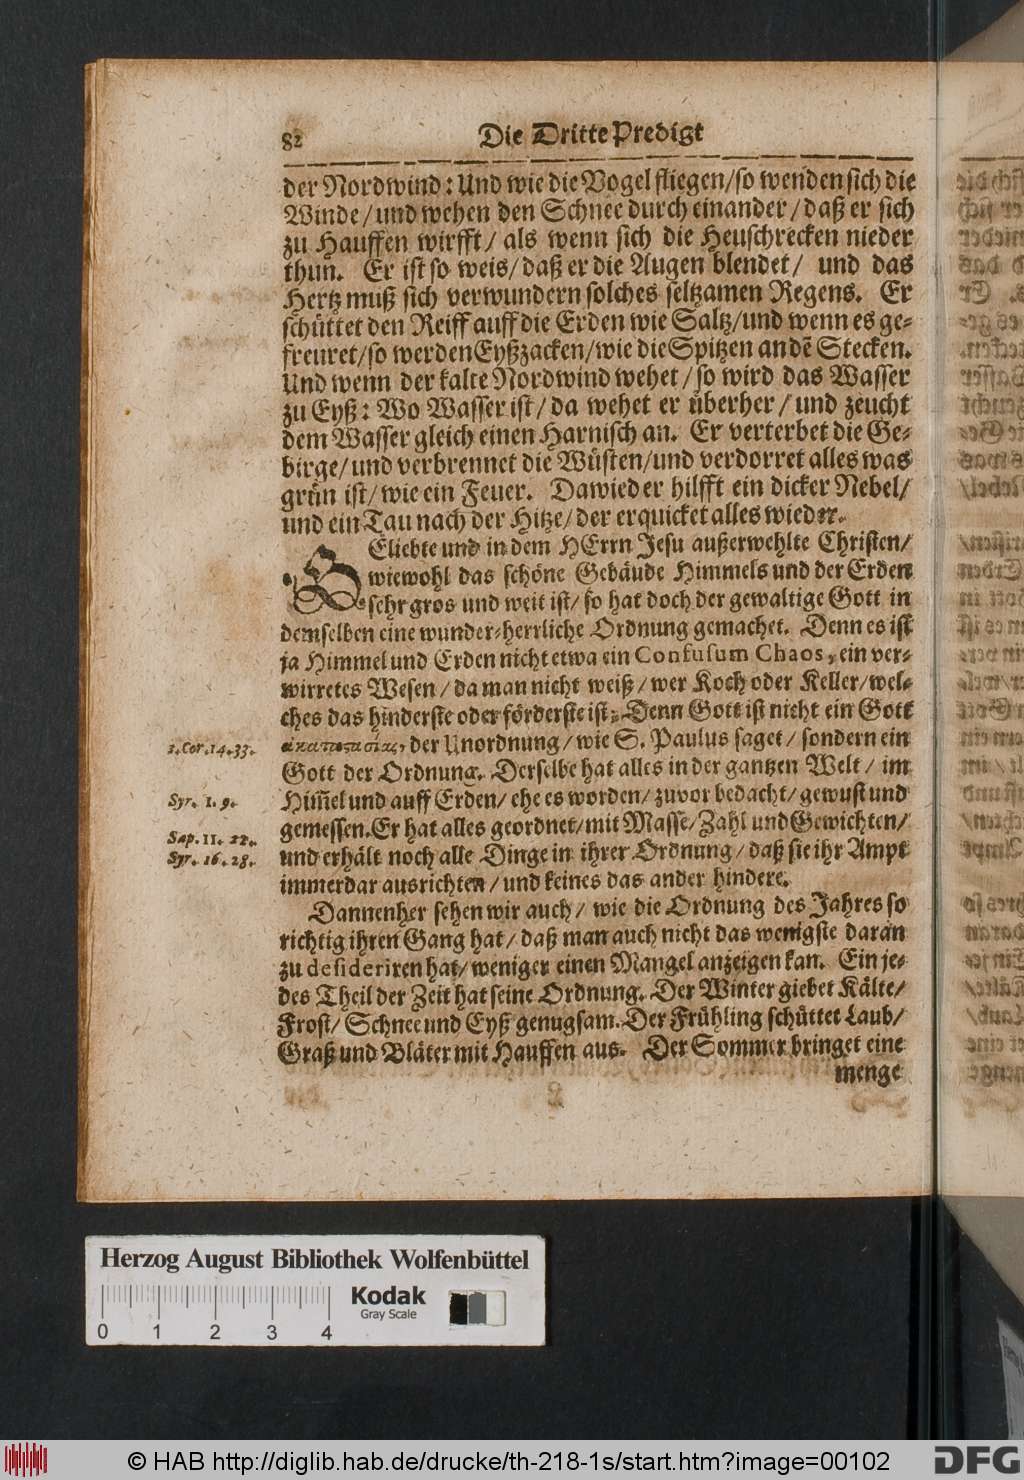 82 Die Dritte Predigt
der Nordwind: Und wie die Vogel fliegen/so wenden sich die
Winde/und wehen den Schnee durch einander/daß er sich
zu Hauffen wirfft/ als wenn sich die Heuschrecken nieder
thun. Er ist so weis/daß er die Augen blendet/ und das
Hertz muß sich verwundern solches seltzamen Regens. Er
schüttet den Reiff auff die Erden wie Saltz/und wenn es ge-
freuret/so werden Eyßzacken/wie die Spitzen an dē Stecken.
Und wenn der kalte Nordwind wehet/so wird das Wasser
zu Eyß: Wo Wasser ist/da wehet er überher/und zeucht
dem Wasser gleich einen Harnisch an. Er verterbet die Ge-
birge/und verbrennet die Wüsten/und verdorret alles was
grün ist/wie ein Feuer. Dawieder hilfft ein dicker Nebel/
und ein Tau nach der Hitze/der erquicket alles wieder.
GEliebte und in dem HErrn Jesu außerwehlte Christen/
wiewohl das schöne Gebäude Himmels und der Erden
sehr gros und weit ist/ so hat doch der gewaltige Gott in
demselben eine wunder-herrliche Ordnung gemachet. Denn es ist
ja Himmel und Erden nicht etwa ein Confusum Chaos, ein ver-
wirretes Wesen/da man nicht weiß/wer Koch oder Keller/wel-
ches das hinderste oder förderste ist: Denn Gott ist nicht ein Gott
1. Cor. 14. 33. ἀκαταστασίας, der Unordnung/wie S. Paulus saget/sondern ein
Gott der Ordnung. Derselbe hat alles in der gantzen Welt/ im
Syr. 1. 9. Him̄el und auff Erden/ehe es worden/zuvor bedacht/gewust und
Sap. 11. 22. gemessen. Er hat alles geordnet/mit Masse/Zahl und Gewichten/
Syr. 16. 28. und erhält noch alle Dinge in ihrer Ordnung/daß sie ihr Ampt
immerdar ausrichten/und keines das ander hindere.
Dannenher sehen wir auch/ wie die Ordnung des Jahres so
richtig ihren Gang hat/daß man auch nicht das wenigste daran
zu desideriren hat/weniger einen Mangel anzeigen kan. Ein je-
des Theil der Zeit hat seine Ordnung. Der Winter giebet Kälte/
Frost/ Schnee und Eyß genugsam. Der Frühling schüttet Laub/
Graß und Bläter mit Hauffen aus. Der Sommer bringet eine
menge
Herzog August Bibliothek Wolfenbüttel
Kodak
Gray Scale
0 1 2 3 4
© HAB http://diglib.hab.de/drucke/th-218-1s/start.htm?image=00102
DFG